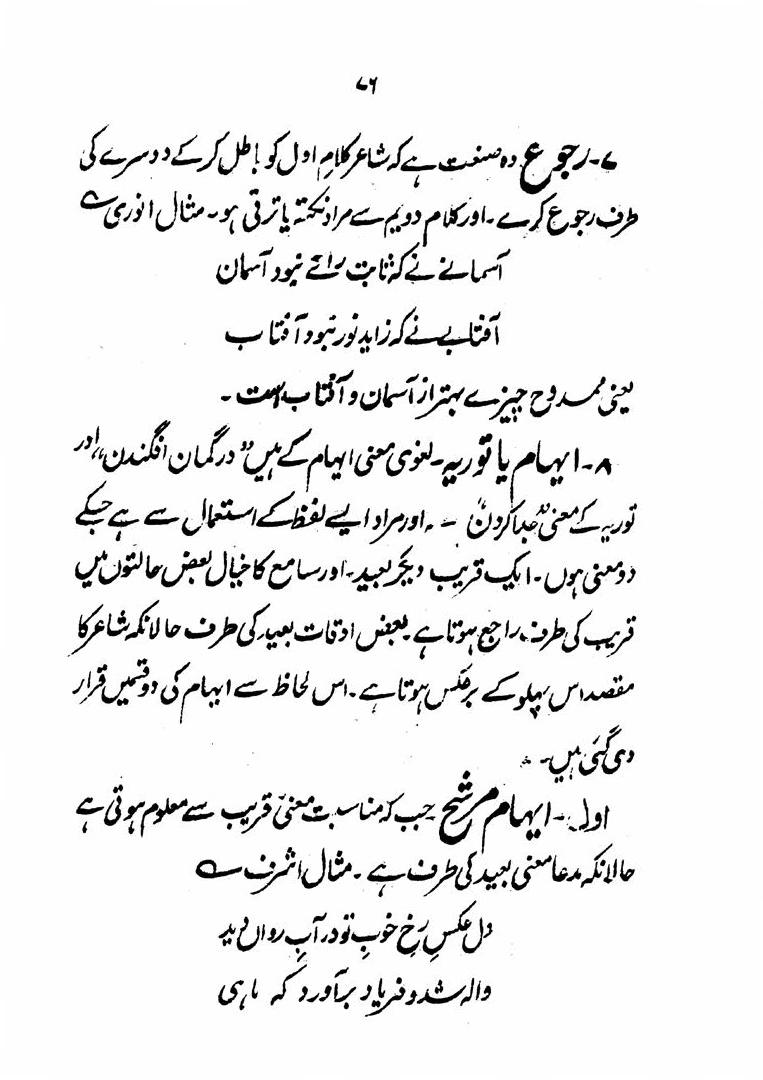 ۷۶
۷۔ رجوع وہ صنعت ہے کہ شاعر کلامِ اول کو باطل کر کے دوسرے کی
طرف رجوع کرے۔ اور کلام دویم سے مراد نکتہ یا ترقی ہو۔ مثال انوری ؎
آسمانے نے کہ ثابت رائے نبود آسمان
آفتابے نے کہ زاید نور نبود آفتاب
یعنی ممدوح چیزے بہتر از آسمان و آفتاب است۔
۸۔ ایہام یا توریہ۔ لغوی معنی ایہام کے ہیں "در گمان افگندن"، اور
توریہ کے معنی "جدا کردن" ۔۔ اور مراد ایسے لفظ کے استعمال سے ہے جسکے
دو معنی ہوں۔ ایک قریب دیگر بعید۔ اور سامع کا خیال بعض حالتوں میں
قریب کی طرف راجع ہوتا ہے۔ بعض اوقات بعید کی طرف حالانکہ شاعر کا
مقصد اس پہلو کے برعکس ہوتا ہے۔ اس لحاظ سے ایہام کی دو قسمیں قرار
دی گئی ہیں۔
اول۔ ایہام مرشح جب کہ مناسبت معنیٔ قریب سے معلوم ہوتی ہے
حالانکہ مدعا معنی بعید کی طرف ہے۔ مثال اشرف ؎
دل عکسِ رُخِ خوبِ تو در آبِ رواں دید
والہ شد و فریاد بر آورد کہ ماہی